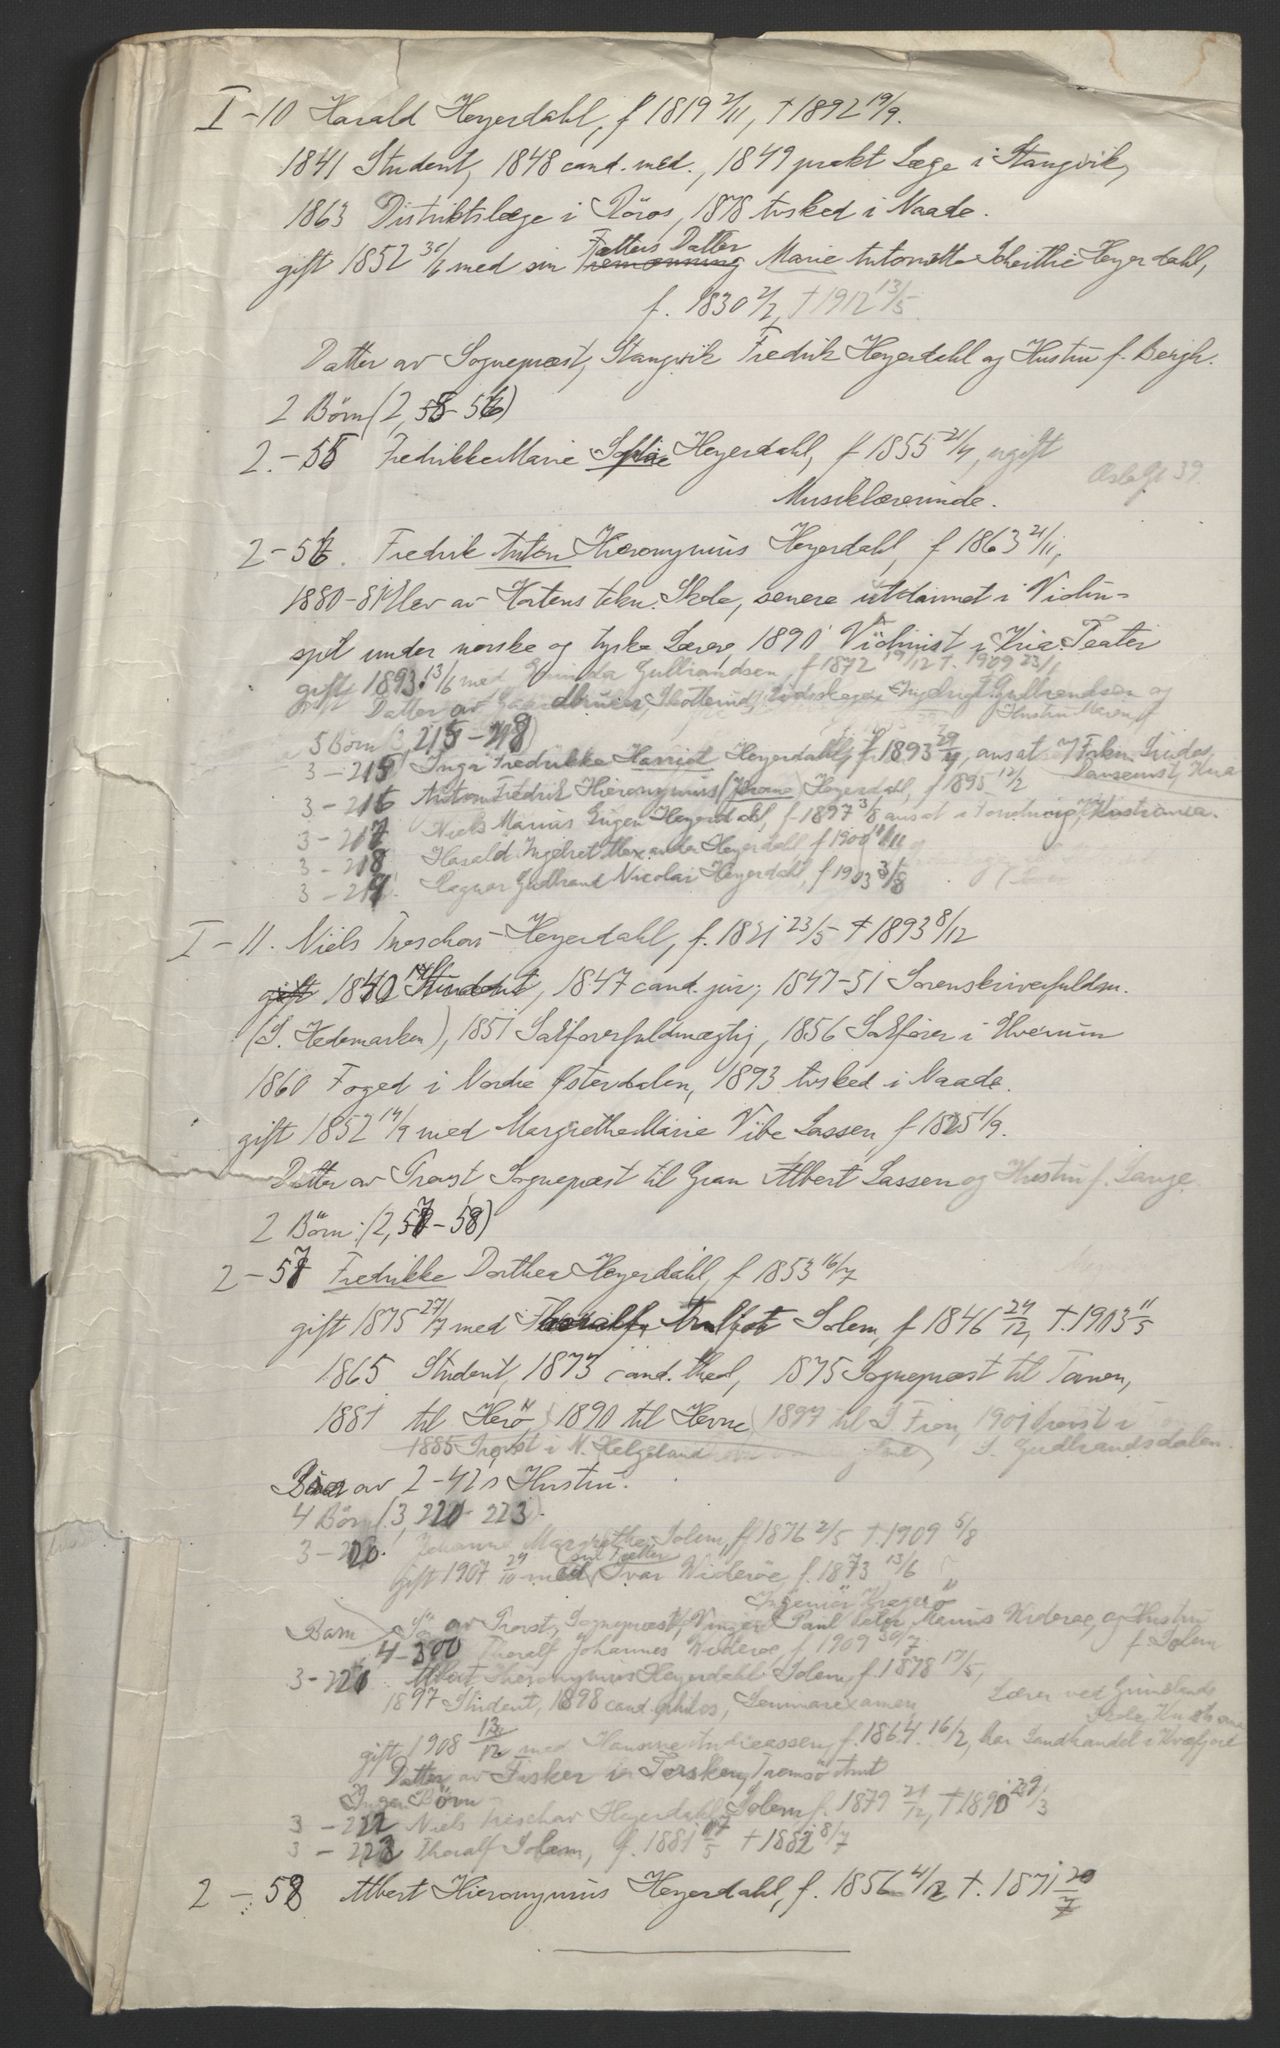 I - 10 Harald Heyerdahl, f 1819 2/11, † 1892 19/9.
1841 Student, 1848 cand. med., 1849 prakt Læge i Stangvik,
1863 Distriktslæge i Röros, 1878 avsked i Naade.
Fætters Datter
gift 1852 30/6 med sin Marie Antonette Scheithe Heyerdahl,
f. 1830 2/2, † 1912 13/5.
Datter av Sogneprest, Stangvik Fredrik Heyerdahl og Hustru f. Bergh.
2 Børn (2, 55-56)
2.-55 Fredrikke Marie Sophie Heyerdahl, f 1855 21/4, ugift
Oslo Gt 39.
Musiklærerinde.
2-56. Fredrik Anton Hieronymus Heyerdahl, f 1863 21/11,
1880-81 Elev av Hortens tekn. Skole, senere utdannet i Violin-
spil under norske og tyske Lærere, 1890 Violinist i Kria. Teater
gift 1893 13/6 med Gulbrandsen, f 1872 19/12 †. 1909 23/1
Datter av Gaardbruker, Skotterud, Ingebrigt Gulbrandsen og
Hustru Maren f
5 Børn (3, 215-219)
3-215 Inga Fredrikke Harriet Heyerdahl, f. 1893 29/9, ansat
Danserinde, Kria
3-216 Anton Fredrik Hieronymus (Jerome) Heyerdahl, f 1895 12/2
3-217 Niels Marius Eugen Heyerdahl, f 1897 3/8 ansat i Forretning, Kristiania.
3-218 Harald Ingebret Alexander Heyerdahl f 1900 11/11
3-219 Ragnar Gudbrand Nicolai Heyerdahl, f 1903 3/8
I - 11. Niels Treschow Heyerdahl, f. 1821 23/5 † 1893 8/12
gift 1840 Student, 1847 cand. jur; 1847-51 Sorenskriverfuldm.
(S. Hedemarken), 1851 Sakførerfuldmægtig, 1856 Sakfører i Elverum
1860 Foged i Nordre Østerdalen, 1893 avsked i Naade.
gift 1852 14/9 med Margrethe Marie Vibe Lassen f 1825 1/9.
Datter av Provst Sogneprest til Gran Albert Lassen og Hustru f. Lange.
2 Børn: (2, 57-58)
2-57 Fredrikke Dorthea Heyerdahl, f 1853 16/7
gift 1875 27/7 med Thoralf Arnljot Solem, f 1846 24/12, †. 1903 11/5
1865 Student, 1873 cand. theol, 1875 Sogneprest til Tanen,
1881 til Herö 1890 til Hevne 1897 til S. Fron, 1901 provst i
1885 Provst i N. Helgeland S. Gudbrandsdalen.
Bror av 2-42s Hustru.
4 Børn (3, 220-223).
3-220. Johanne Margrethe Solem, f 1876 2/5 † 1909 5/8
Gift 1907 29/10 med sin Fætter Ivar Widerøe, f. 1873 13/6
Ingeniör Kragerö
Barn Sön av Provst, Sogneprest, Vinger Paul Peter Marius Widerøe, og Hustru
f. Solem
4-300 Thoralf Johannes Widerøe f 1909 30/7
3-221 Albert Hieronymus Heyerdahl Solem, f 1878 17/5,
1897 Student, 1898 cand. philos, Seminarexamen, Lærer ved Grindlands
Skole,
gift 1908 12/12 med Hansine Andreassen, f. 1864. 16/2, har Landhandel i Kvæfjord
Datter av Fisker i Torsken, Tromsö Amt
Ingen Børn
3-222 Niels Treschow Heyerdahl Solem f. 1879 21/12, † 1890 29/3
3-223 Thoralf Solem, f. 1881 17/5 † 1882 8/7
2 - 58 Albert Hieronymus Heyerdahl, f. 1856 4/12 †. 1871 20/7